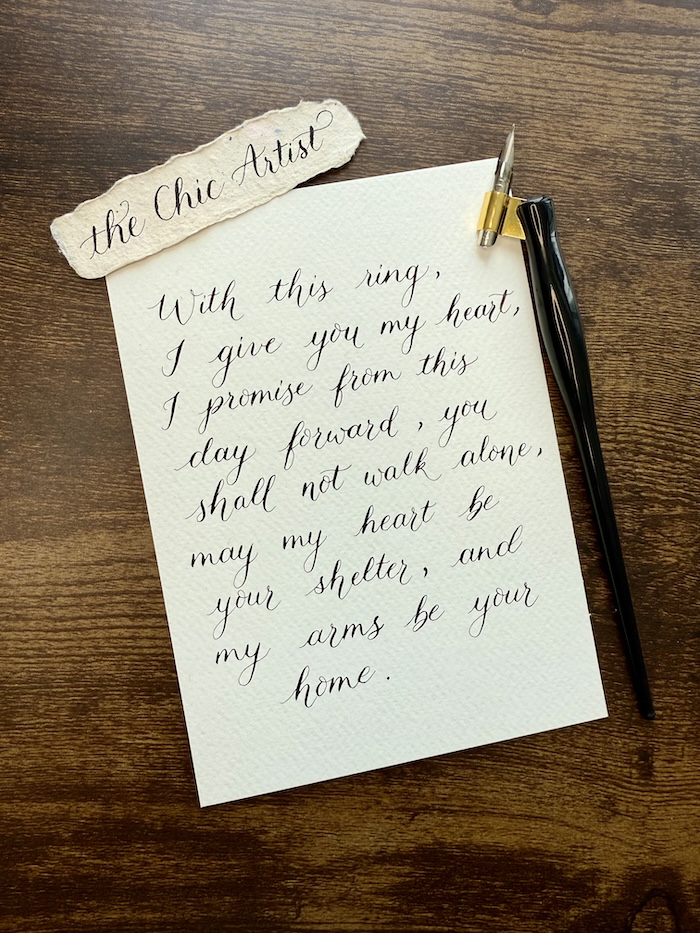 the Chic Artist
With this ring,
I give you my heart,
I promise from this
day forward, you
shall not walk alone,
may my heart be
your shelter, and
my arms be your
home.